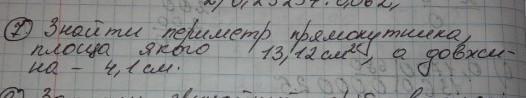 7) Знайти периметр прямокутника,
площа якого 13,12 см², а довжи-
на - 4,1 см.